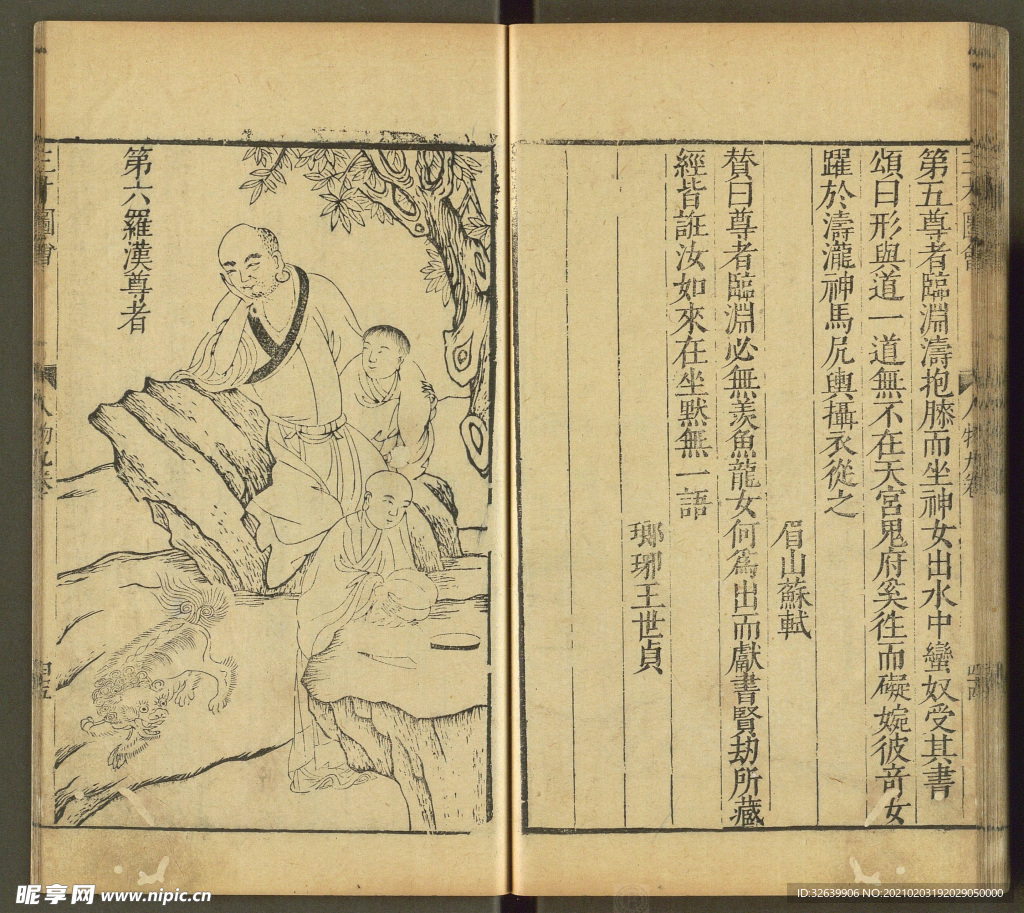 第五尊者臨淵濤抱膝而坐神女出水中蠻奴受其書
頌曰形與道一道無不在天宮鬼府奚往而礙婉彼竒女
躍於濤瀧神馬凥輿攝衣從之
眉山蘇軾
賛曰尊者臨淵必無羨魚龍女何爲出而獻書賢劫所藏
經皆誑汝如來在坐黙無一語
瑯琊王世貞
第六羅漢尊者
三才圖會
人物九卷
四五
昵享网 www.nipic.cn
ID:32639906 NO:20210203192029050000